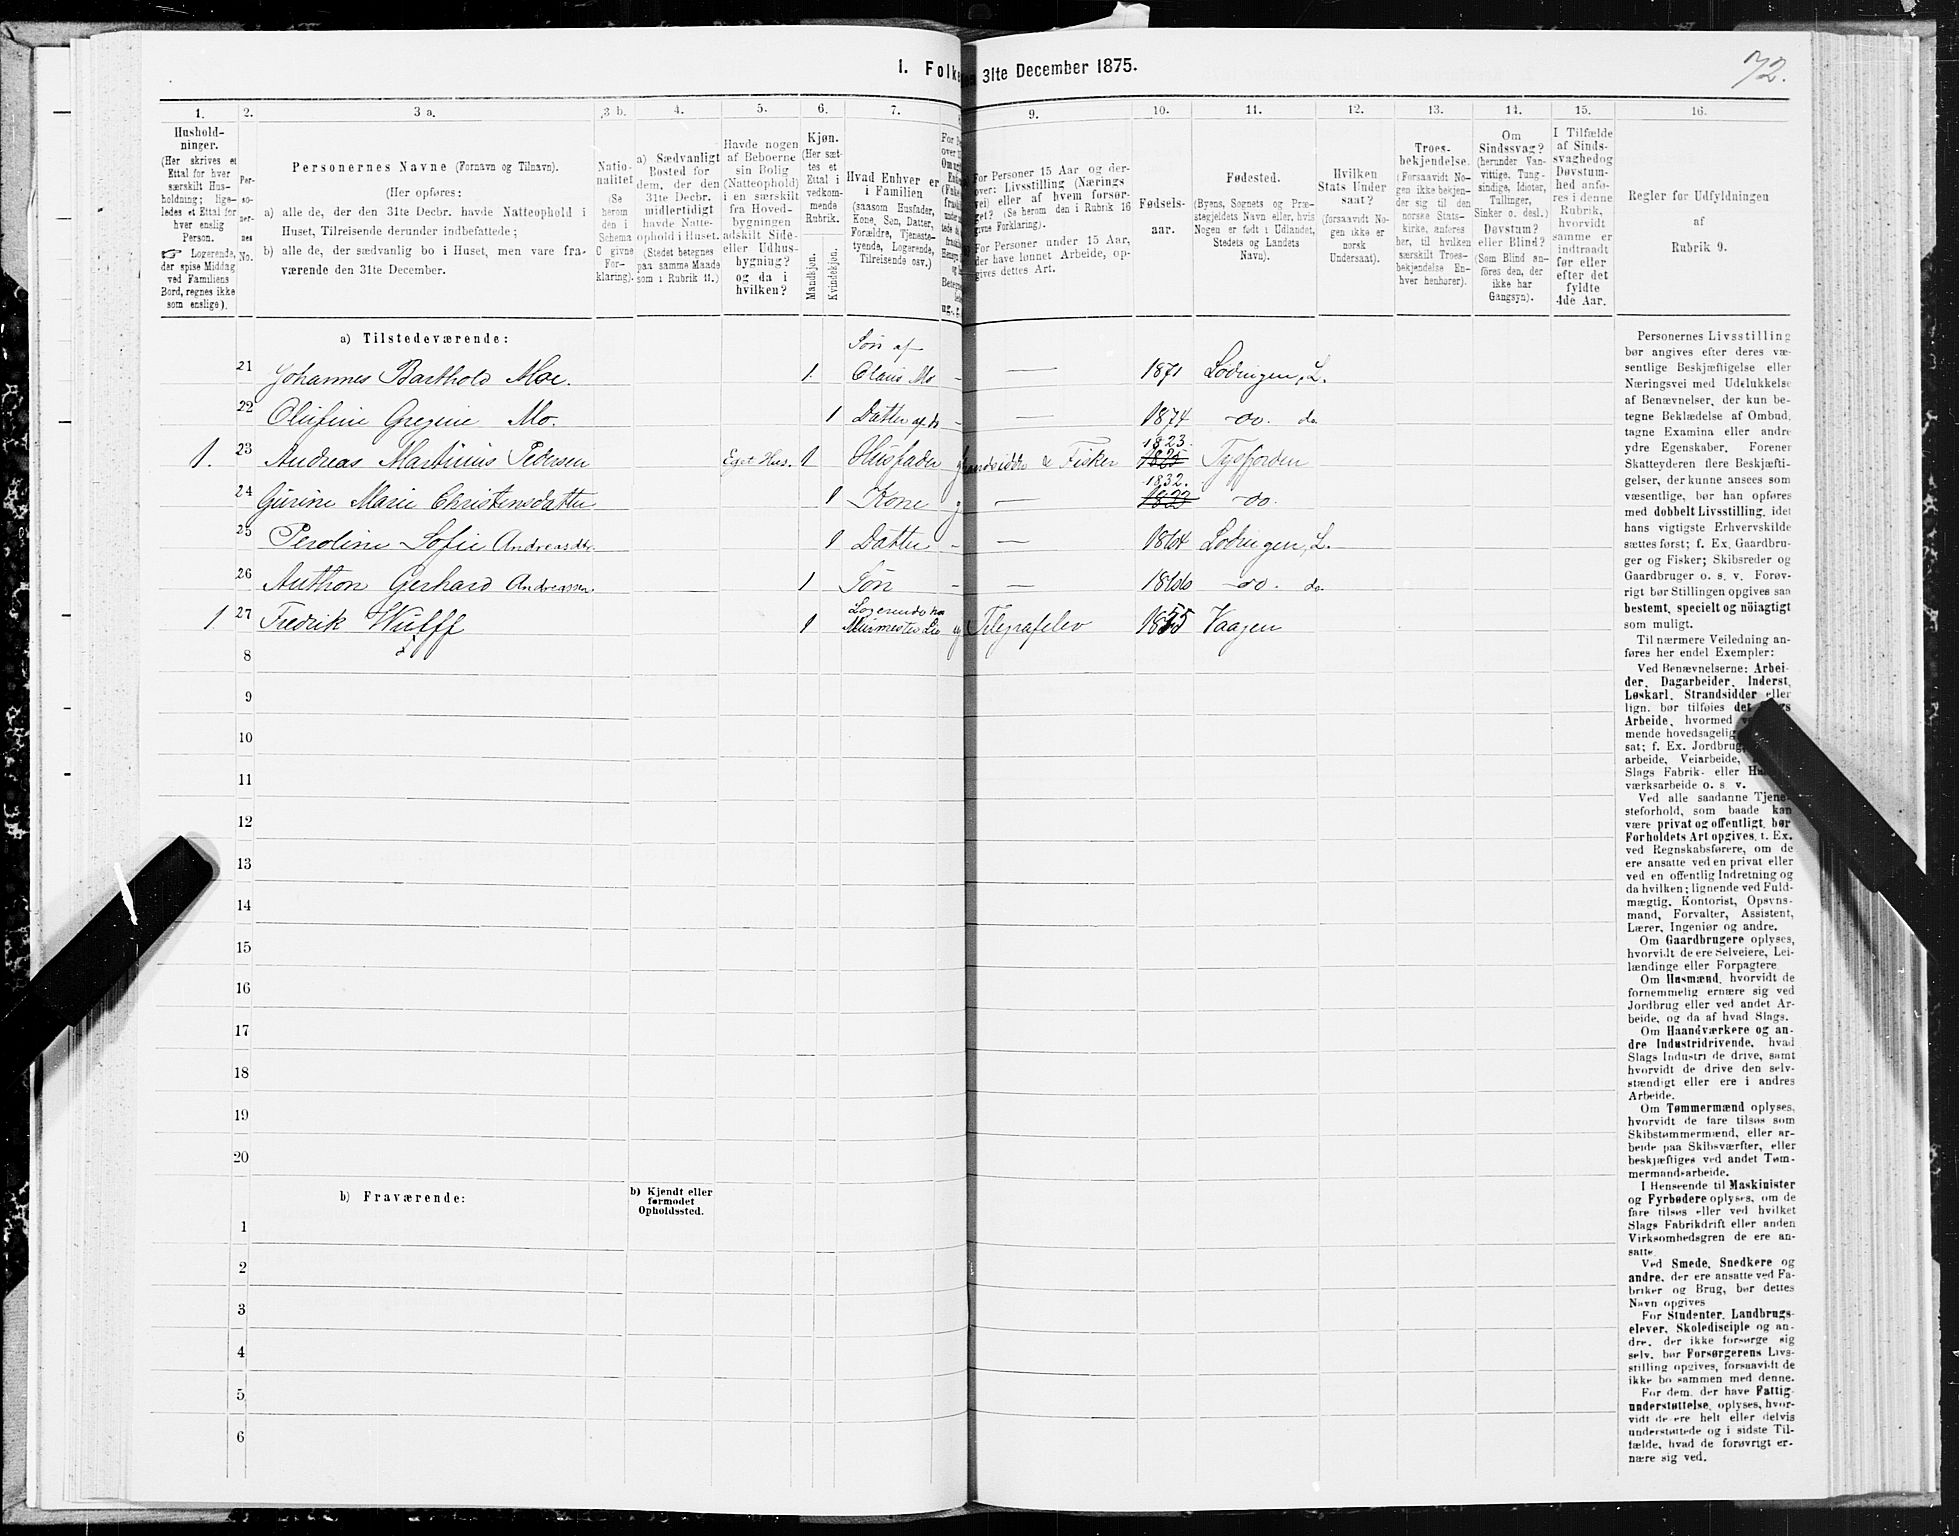 72.
1. Folke
31te December 1875.
1. 2. 3 a. 3 b. 4. 5. 6. 7. 9. 10. 11. 12. 13. 14. 15. 16.
Hushold-
ninger.
(Her skrives et
Ettal for hver
særskilt Hus-
holdning; lige-
ledes et Ettal for
hver enslig
Person.
☞ Logerende,
der spise Middag
ved Familiens
Bord, regnes ikke
som enslige).
Per-
so-
ner-
nes
No.
Personernes Navne (Fornavn og Tilnavn).
(Her opføres:
a) alle de, der den 31te Decbr. havde Natteophold i
Huset, Tilreisende derunder indbefattede;
b) alle de, der sædvanlig bo i Huset, men vare fra-
værende den 31te December.
Natio-
nalitet
(Se
herom
den i
Schema
6 givne
For-
klaring).
a) Sædvanligt
Bosted for
dem, der den
31te Decbr.
midlertidigt
havde Natte-
ophold i Huset.
(Stedet betegnes
paa samme Maade
som i Rubrik 11.)
Havde nogen
af Beboerne
sin Bolig
(Natteophold)
i en særskilt
fra Hoved-
bygningen
adskilt Side-
eller Udhus-
bygning?
og da i
hvilken?
Kjøn.
(Her sæt-
tes et
Ettal i
vedkom-
mende
Rubrik.
Mandkjøn.
Kvindekjøn.
Hvad Enhver er
i Familien
(saasom Husfader,
Kone, Søn, Datter,
Forældre, Tjeneste-
tyende, Logerende,
Tilreisende osv.)
For Personer 15 Aar og der-
over: Livsstilling (Nærings
vei) eller af hvem forsør-
get? (Se herom den i Rubrik 16
givne Forklaring).
For Personer under 15 Aar,
der have lønnet Arbeide, op-
gives dettes Art.
Fødsels-
aar.
Fødested.
(Byens, Sognets og Præ-
stegjeldets Navn eller, hvis
Nogen er født i Udlandet,
Stedets og Landets
Navn).
Hvilken
Stats Under
saat?
(forsaavidt No-
gen ikke er
norsk
Undersaat).
Troes-
bekjendelse.
(Forsaavidt No-
gen ikke bekjen-
der sig til den
norske Stats-
kirke, anføres
her, til hvilken
særskilt Troes-
bekjendelse En-
hver henhører).
Om
Sindssvag?
(herunder Van-
vittige, Tung-
sindige, Idioter,
Tullinger,
Sinker o. desl.)
Døvstum?
eller Blind?
(Som Blind an-
føres den, der
ikke har
Gangsyn).
I Tilfælde
af Sinds-
svaghedog
Døvstum-
hed anfø-
res i denne
Rubrik,
hvorvidt
samme er
indtraadt
før eller
efter det
fyldte
4de Aar.
Regler for Udfyldningen
af
Rubrik 9.
a) Tilstedeværende:
21 Johannes Barthold Moe. 1 Søn af Claus Mo — 1871 Lødingen, L.
22 Olufine Gregine Mo. 1 Datter af do — 1874 do. do
1. 23 Andreas Martinus Pedersen Eget Hus. 1 Husfader Gaardsidder & Fisker 1823. Tysfjorden
24 Gurine Marie Christensdatter 1 Kone g — 1832. do.
25 Peroline Sofie Andreasdtr. 1 Datter — 1864 Lødingen, L.
26 Anthon Gerhard Andreassen 1 Søn — 1866 do. do
1. 27 Fredrik Wulff 1 Logerende hos Murmester Lie ug Telegrafelev 1855 Vaagen
8
9
10
11
12
13
14
15
16
17
18
19
20
b) Fraværende:
b) Kjendt eller
formodet
Opholdssted.
1
2
3
4
5
6
Personernes Livsstilling
bør angives efter deres væ-
sentlige Beskjæftigelse eller
Næringsvei med Udelukkelse
af Benævnelser, der kun be-
tegne Beklædelse af Ombud,
tagne Examina eller andre
ydre Egenskaber. Forener
Skatteyderen flere Beskjæfti-
gelser, der kunne ansees som
væsentlige, bør han opføres
med dobbelt Livsstilling, idet
hans vigtigste Erhvervskilde
sættes først; f. Ex. Gaardbru-
ger og Fisker; Skibsreder og
Gaardbruger o. s. v. Forøv-
rigt bør Stillingen opgives saa
bestemt, specielt og nöiagtigt
som muligt.
Til nærmere Veiledning an-
føres her endel Exempler:
Ved Benævnelserne: Arbei-
der, Dagarbeider, Inderst,
Løskarl, Strandsidder eller
lign. bør tilføies det
Arbeide, hvormed
mende hovedsagelig
sat; f. Ex. Jordbrug,
arbeide, Veiarbeide,
Slags Fabrik- eller
værksarbeide o. s v.
Ved alle saadanne Tjene-
steforhold, som baade kan
være privat og offentligt, bør
Forholdets Art opgives, t. Ex.
ved Regnskabsførere, om de
ere ansatte ved en privat eller
ved en offentlig Indretning og
da hvilken; lignende ved Fuld-
mægtig, Kontorist, Opsyns-
mand, Forvalter, Assistent,
Lærer, Ingeniør og andre.
Om Gaardbrugere oplyses,
hvorvidt de ere Selveiere, Lei-
lændinge eller Forpagtere
Om Husmænd, hvorvidt de
fornemmelig ernære sig ved
Jordbrug eller ved andet Ar-
beide, og da af hvad Slags.
Om Haandværkere og an-
dre Industridrivende, hvad
Slags Industri de drive, samt
hvorvidt de drive den selv-
stændigt eller ere i andres
Arbeide.
Om Tømmermænd oplyses,
hvorvidt de fare tilsøs som
Skibstømmermænd, eller ar-
beide paa Skibsværfter, eller
beskjæftiges ved andet Tøm-
mermandsarbeide.
I Henseende til Maskinister
og Fyrbødere oplyses, om de
fare tilsøs eller ved hvilket
Slags Fabrikdrift eller anden
Virksomhedsgren de ere an-
satte.
Ved Smede, Snedkere og
andre, der ere ansatte ved Fa-
briker og Brug, bør dettes
Navn opgives
For Studenter, Landbrugs-
elever, Skoledisciple og an-
dre, der ikke forsørge sig
selv, bør Forsørgerens Livs-
stilling opgives, forsaavidt de
ikke bo sammen med denne.
For dem, der have Fattig-
understøttelse, oplyses, hvor-
vidt de ere helt eller delvis
understøttede og i sidste Til-
fælde, hvad de forøvrigt er-
nære sig ved.